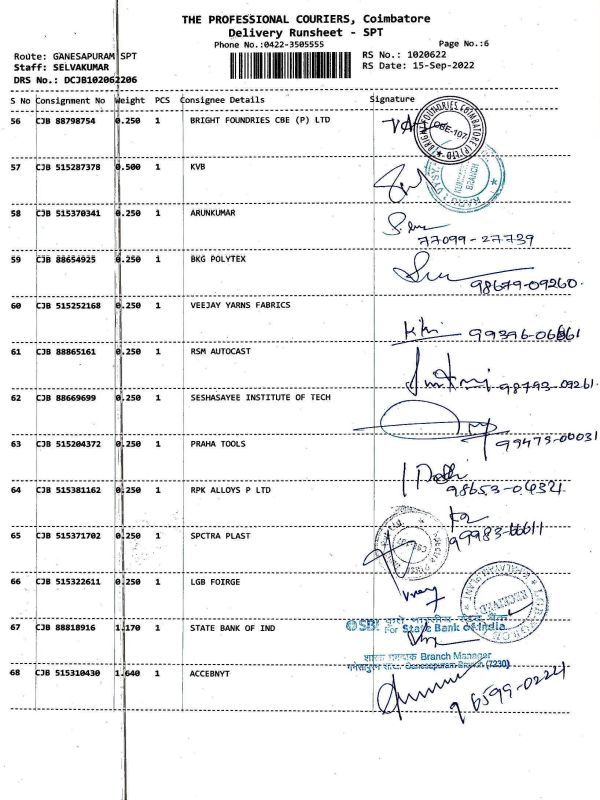 THE PROFESSIONAL COURIERS, Coimbatore
Delivery Runsheet - SPT
Phone No.:0422-3505555 Page No.:6
Route: GANESAPURAM SPT RS No.: 1020622
Staff: SELVAKUMAR RS Date: 15-Sep-2022
DRS No.: DCJB102062206
S No Consignment No Weight PCS Consignee Details Signature
56 CJB 88798754 0.250 1 BRIGHT FOUNDRIES CBE (P) LTD
BRIGHT FOUNDRIES COIMBATORE (P) LTD
CBE-107
57 CJB 515287378 0.500 1 KVB
58 CJB 515370341 0.250 1 ARUNKUMAR
77099-27739
59 CJB 88654925 0.250 1 BKG POLYTEX
98679-09260.
60 CJB 515252168 0.250 1 VEEJAY YARNS FABRICS
61 CJB 88865161 0.250 1 RSM AUTOCAST
98793-09261.
62 CJB 88669699 0.250 1 SESHASAYEE INSTITUTE OF TECH
99479-00031
63 CJB 515204372 0.250 1 PRAHA TOOLS
64 CJB 515381162 0.250 1 RPK ALLOYS P LTD
98653-04321.
65 CJB 515371702 0.250 1 SPCTRA PLAST
66 CJB 515322611 0.250 1 LGB FOIRGE
RECEIVED
67 CJB 88818916 1.170 1 STATE BANK OF IND
SBI
For State Bank of India
Branch Manager
Ganesapuram Branch (7230)
68 CJB 515310430 1.640 1 ACCEBNYT
96599-0224